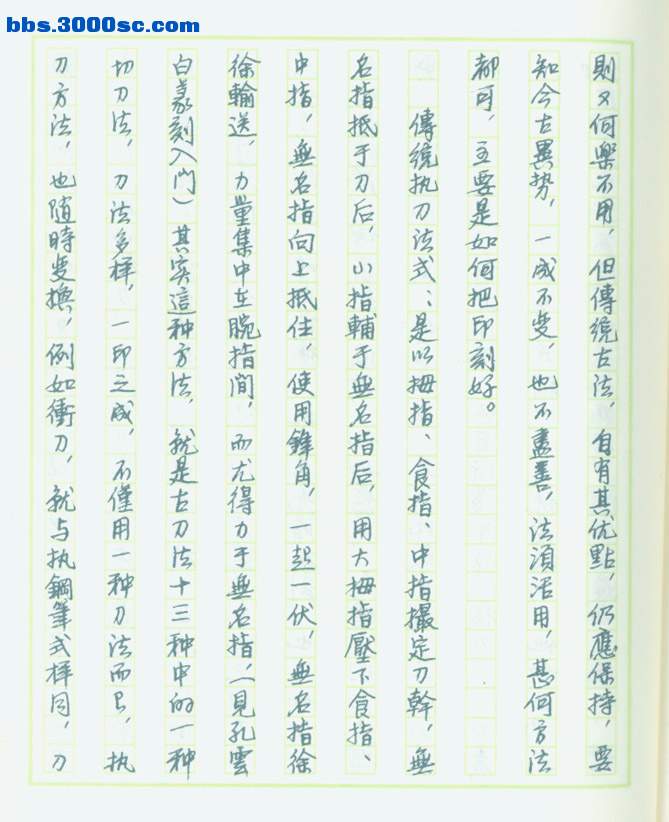 bbs.3000sc.com
則又何樂不用，但傳統古法，自有其优點，仍應保持，要
知今古異势，一成不变，也不盡善，法須活用，甚何方法
都可，主要是如何把印刻好。
傳统执刀法式：是以拇指、食指、中指撮定刀幹，無
名指抵于刀后，小指輔于無名指后，用大拇指壓下食指、
中指，無名指向上抵住，使用鋒角，一起一伏，無名指徐
徐輸送，力量集中在腕指间，而尤得力于無名指，（見孔雲
白篆刻入门）其实這种方法，就是古刀法十三种中的一种
切刀法，刀法多样，一印之成，不僅用一种刀法而已，执
刀方法，也随時变换，例如衝刀，就与执鋼筆式样同，刀